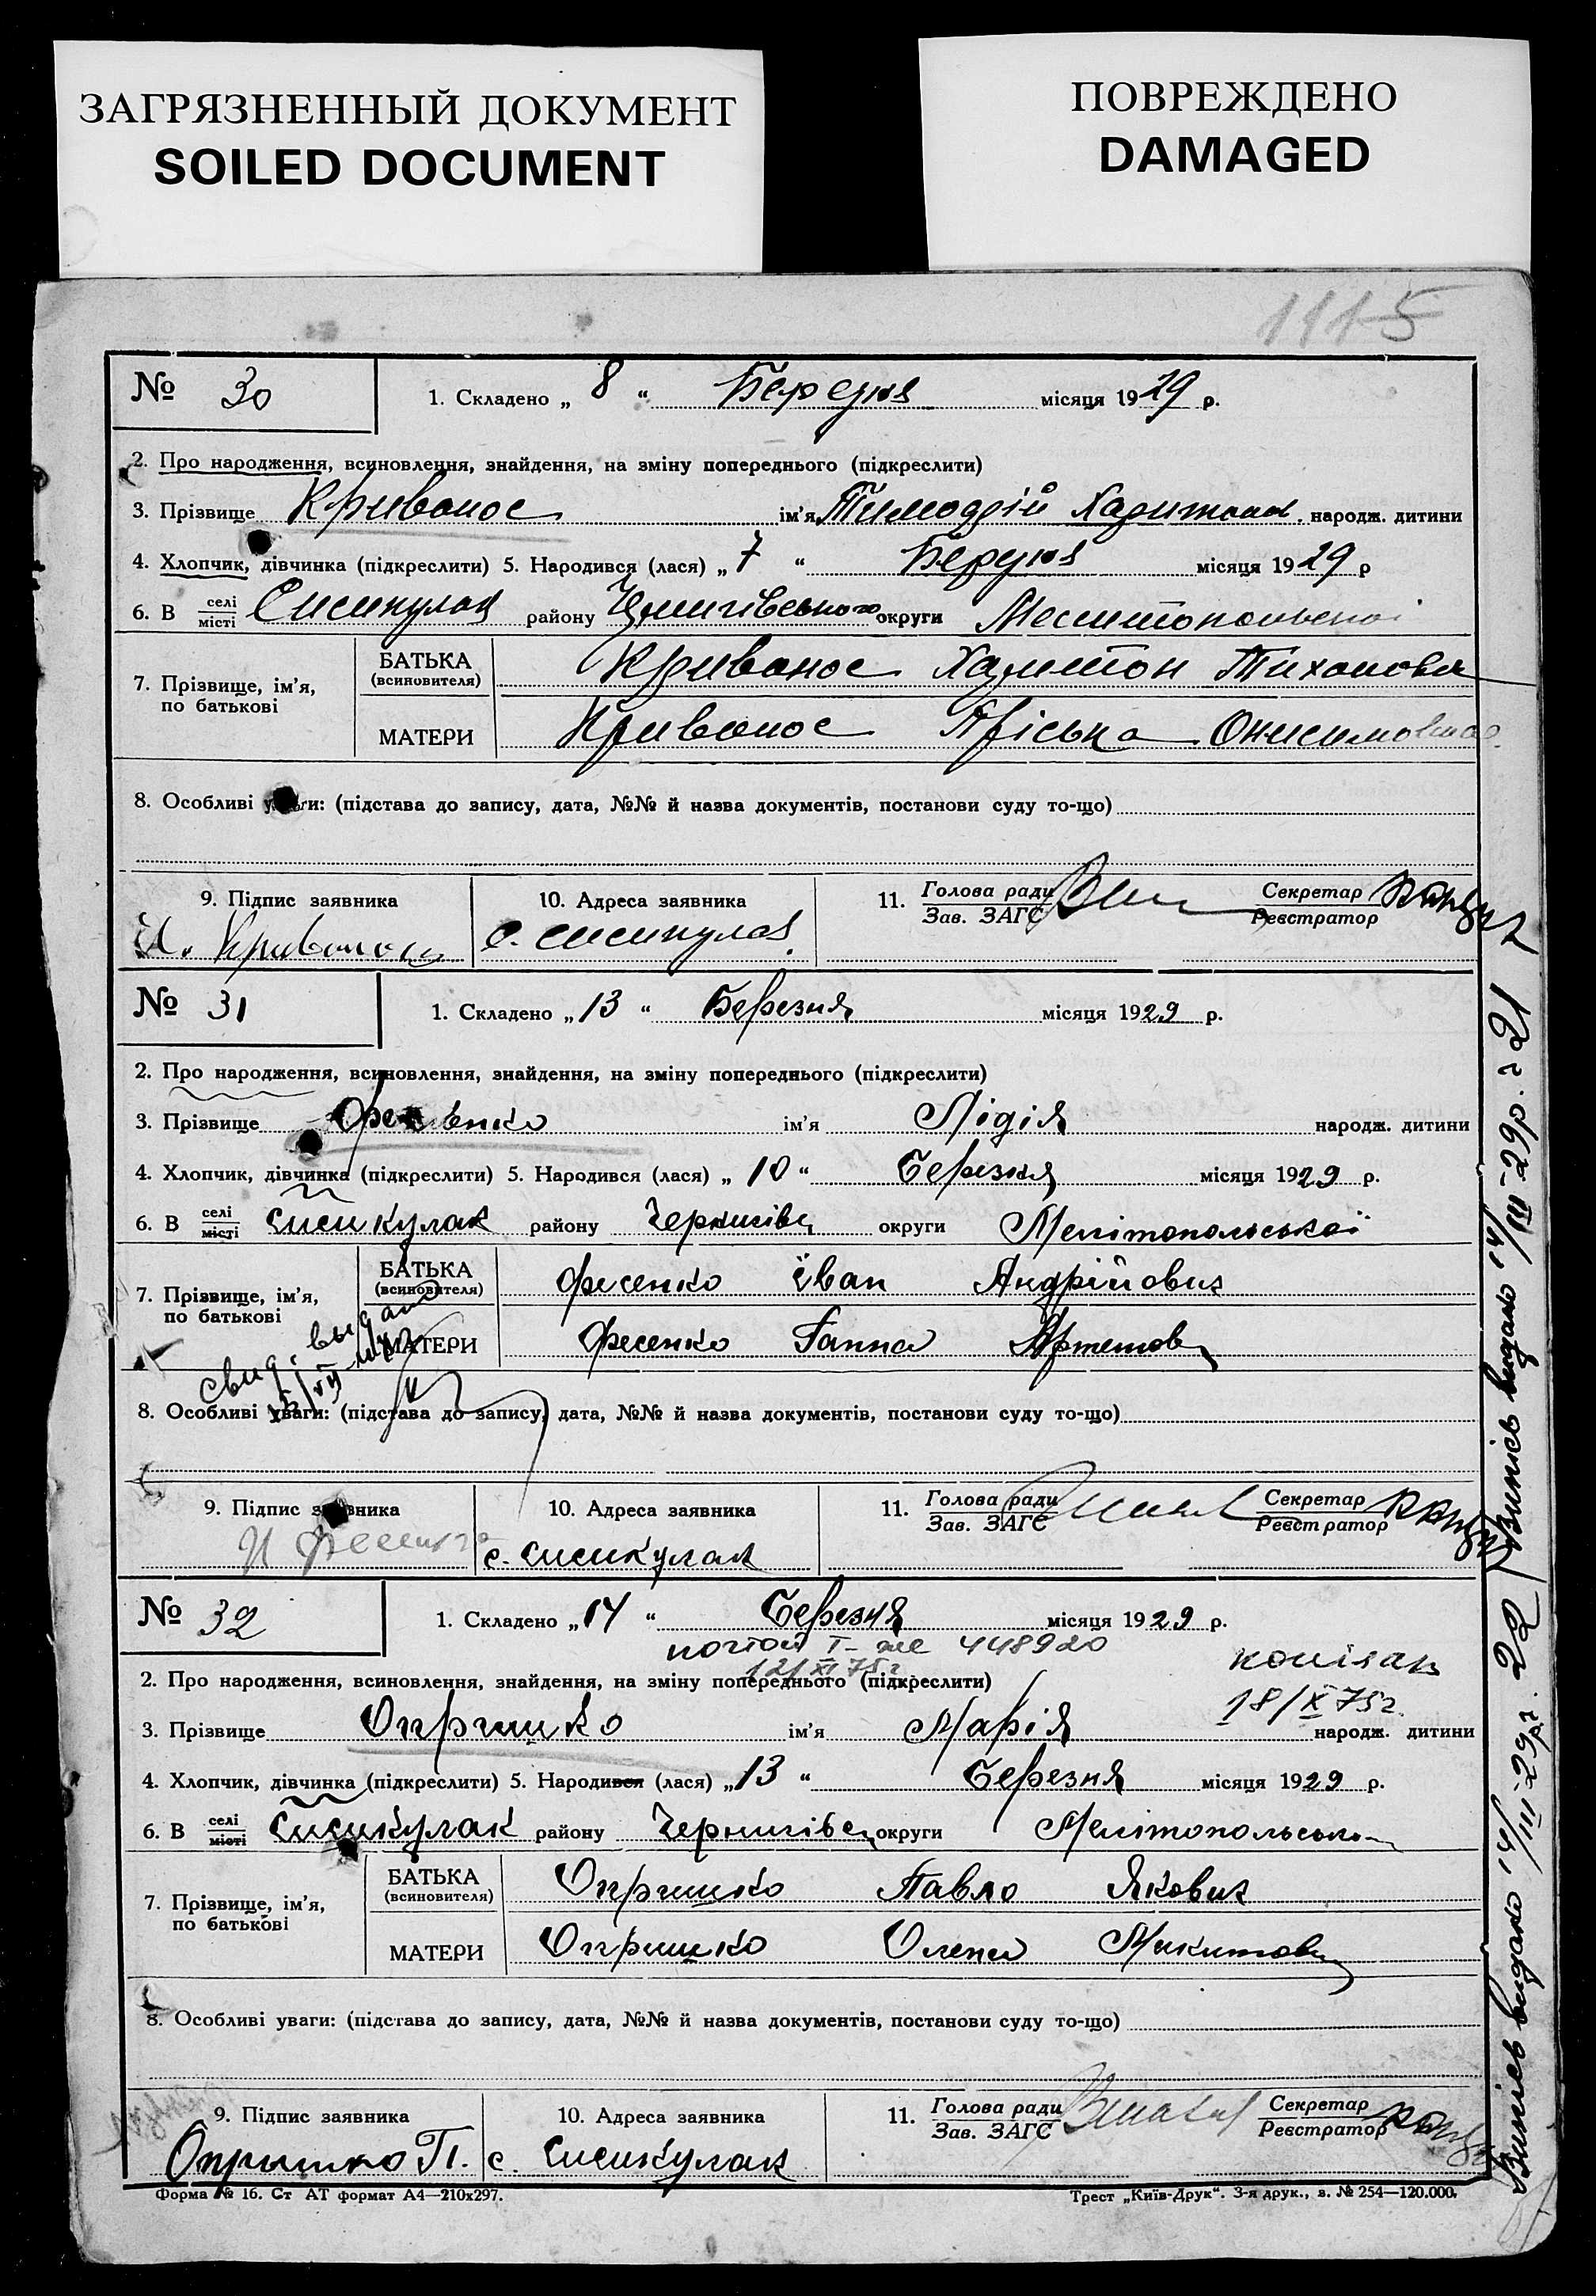 ЗАГРЯЗНЕННЫЙ ДОКУМЕНТ
SOILED DOCUMENT
ПОВРЕЖДЕНО
DAMAGED
1115
№ 30 1. Складено „ 8 “ Березня місяця 1929 р.
2. Про народження, всиновлення, знайдення, на зміну попереднього (підкреслити)
3. Прізвище Кривонос ім’я Тимофій Харитонов. народж. дитини
4. Хлопчик, дівчинка (підкреслити) 5. Народився (лася) „ 7 “ Березня місяця 1929 р
6. В селі місті Сисикулак району округи
7. Прізвище, ім’я, по батькові
БАТЬКА (всиновителя) Кривонос Харитон Тихонович
МАТЕРИ Кривонос Онисимовна
8. Особливі уваги: (підстава до запису, дата, №№ й назва документів, постанови суду то-що)
9. Підпис заявника 10. Адреса заявника 11. Голова ради Зав. ЗАГС Секретар Реєстратор
с. Сисикулак
№ 31 1. Складено „ 13 “ Березня місяця 1929 р.
2. Про народження, всиновлення, знайдення, на зміну попереднього (підкреслити)
3. Прізвище Фесенко ім’я Лідія народж. дитини
4. Хлопчик, дівчинка (підкреслити) 5. Народився (лася) „ 10 “ Березня місяця 1929 р.
6. В селі місті Сисикулак району Чернигівс округи Мелітопольської
7. Прізвище, ім’я, по батькові
БАТЬКА (всиновителя) Фесенко Іван Андрійович
МАТЕРИ Фесенко Ганна Артемовн
свид. выдано
8. Особливі уваги: (підстава до запису, дата, №№ й назва документів, постанови суду то-що)
9. Підпис заявника 10. Адреса заявника 11. Голова ради Зав. ЗАГС Секретар Реєстратор
И Фесенко с. Сисикулак
№ 32 1. Складено „ 14 “ Березня місяця 1929 р.
448920
12/XI 75г
копія
18/X 75г.
2. Про народження, всиновлення, знайдення, на зміну попереднього (підкреслити)
3. Прізвище Опришко ім’я Марія народж. дитини
4. Хлопчик, дівчинка (підкреслити) 5. Народився (лася) „ 13 “ Березня місяця 1929 р.
6. В селі місті Сисикулак району Чернигівс округи Мелітопольсько
7. Прізвище, ім’я, по батькові
БАТЬКА (всиновителя) Опришко Павло Якович
МАТЕРИ Опришко Олена Микитовн
8. Особливі уваги: (підстава до запису, дата, №№ й назва документів, постанови суду то-що)
9. Підпис заявника 10. Адреса заявника 11. Голова ради Зав. ЗАГС Секретар Реєстратор
Опришко П. с. Сисикулак
Форма № 16. Ст АТ формат А4—210х297.
Трест „Київ-Друк“. 3-я друк., з. № 254—120.000.
Випись видано 14/III-29р. г 21
Випись видано 14/III-29р. г. 22